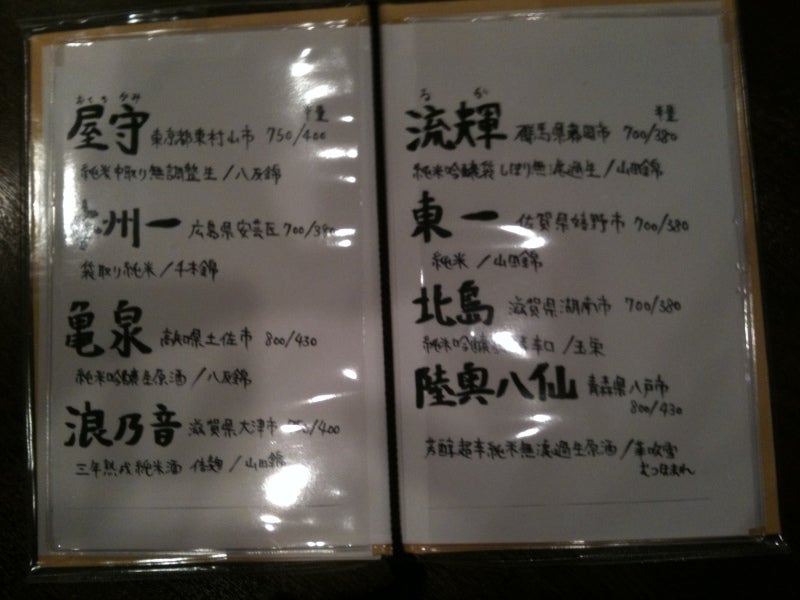 おくのかみ
半量
屋守 東京都東村山市 750/400
純米中取り無調整生/八反錦
州一 広島県安芸区 700/380
袋取り純米/千本錦
亀泉 高知県土佐市 800/430
純米吟醸生原酒/八反錦
浪乃音 滋賀県大津市 /400
三年熟成純米酒 佳麹/山田錦
るか
半量
流輝 群馬県藤岡市 700/380
純米吟醸袋しぼり無濾過生/山田錦
東一 佐賀県嬉野市 700/380
純米/山田錦
北島 滋賀県湖南市 700/380
純米吟醸 辛口/玉栄
陸奥八仙 青森県八戸市
800/430
芳醇超辛純米無濾過生原酒/華吹雪
むつほまれ